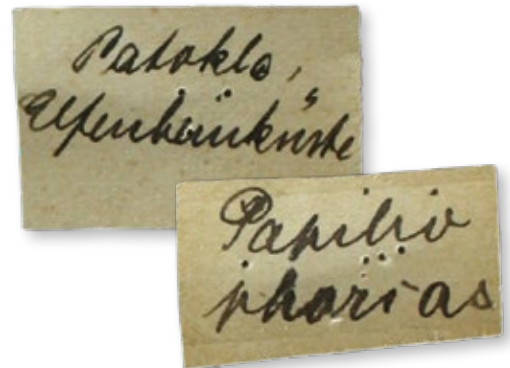 Patoklo,
Elfenbeinküste
Papilio
phorias